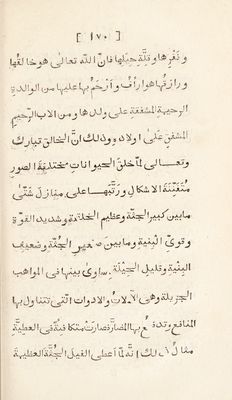 [ ١٧٠ ]
ونفرها وقلّة حيلها فانّ اللّه تعالى هو خالقها
ورازقها هو ارأف وارحم بها عليها من الوالدة
الرحيمة المشفقة على ولدها ومن الاب الرحيم
المشفق على اولاده وذلك انّ الخالق تبارك
وتعالى لمّا خلق الحيوانات مختلفة الصور
متفنّنة الاشكال ورتّبها على منازل شتّى
ما بين كبير الجثّة وعظيم الخلقة وشديد القوّة
وقوىّ البنية وما بين صغير الجثّة وضعيف
البنية وقليل الحيلة ساوى بينها فى المواهب
الجزيلة وهى الآلات والادوات الّتى تتناول بها
المنافع وتدفع بها المضارّ فصارت متكافئة فى العطيّة
مثال ذلك انّه لمّا اعطى الفيل الجثّة العظيمة